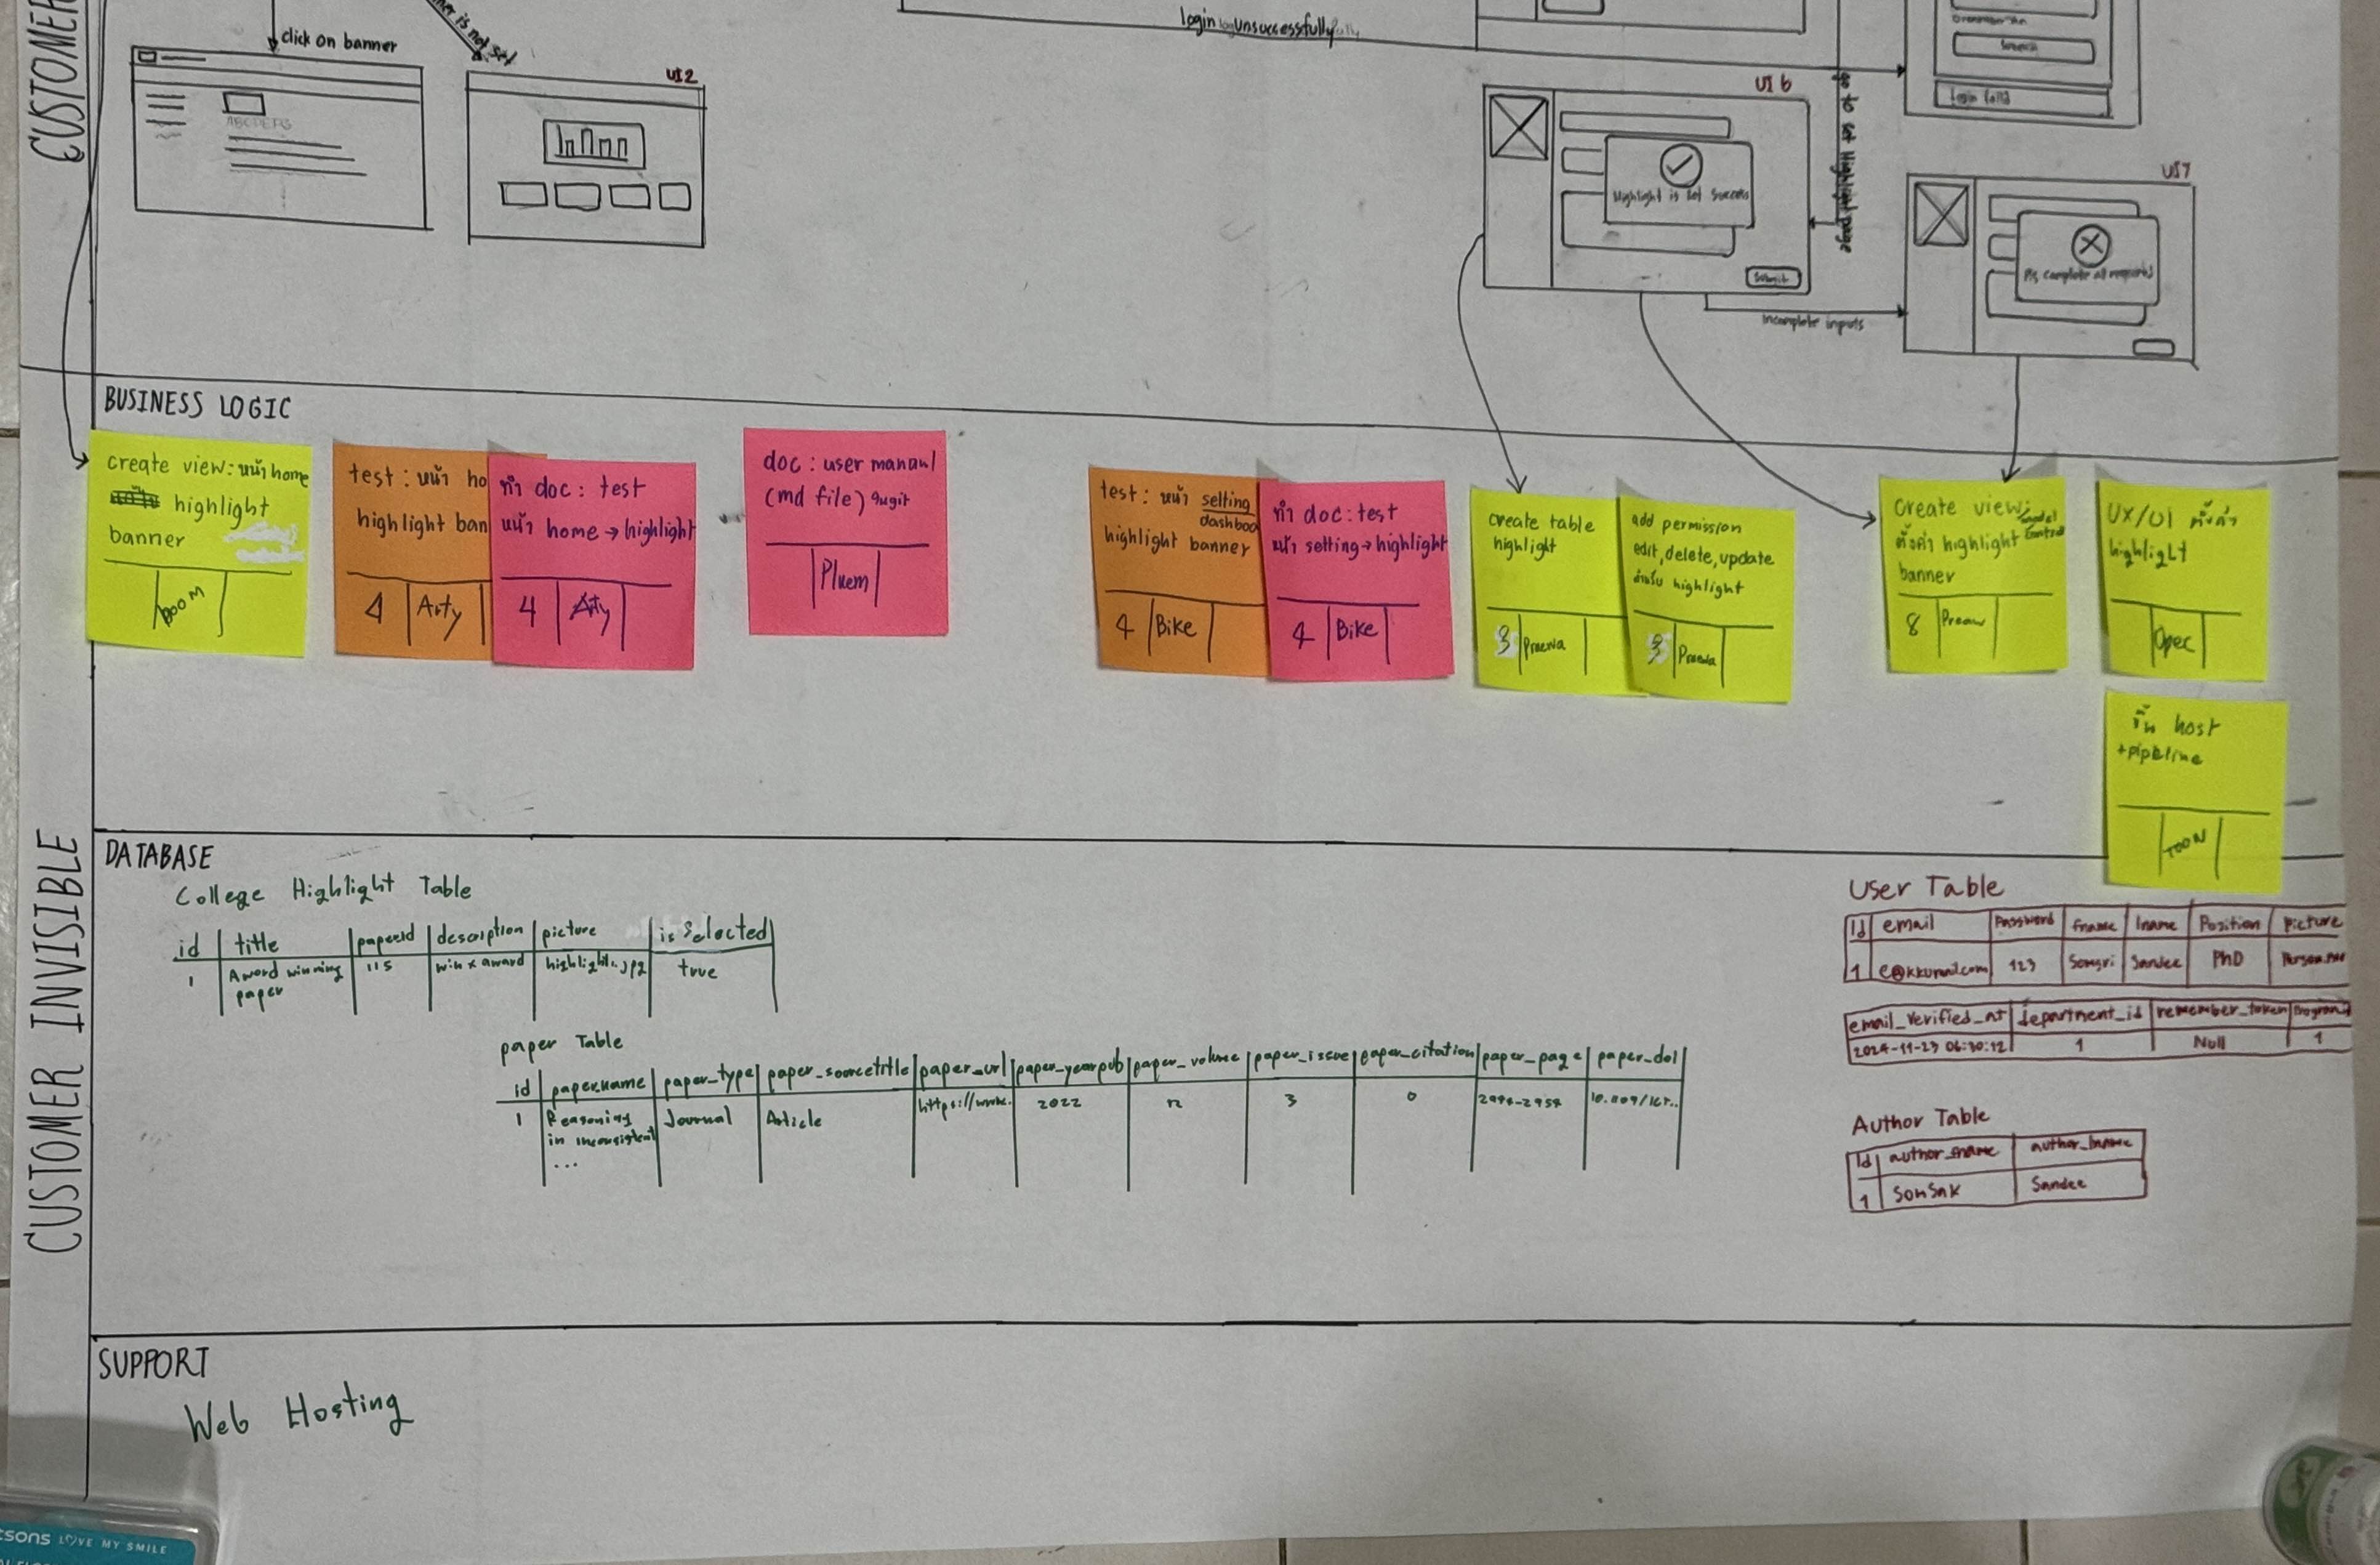 CUSTOMER
click on banner
is not set
UI2
login unsuccessfully
Submit
login fails
UI 6
go to set Highlight page
Highlight is set success
Submit
UI7
Pls complete all required
Incomplete inputs
BUSINESS LOGIC
create view: หน้า home
highlight
banner
BOOM
test: หน้า ho
highlight ban
4 Arty
ทำ doc: test
หน้า home → highlight
4 Arty
doc: user manaul
(md file) ใน git
Pluem
test: หน้า setting
dashboa
highlight banner
4 Bike
ทำ doc: test
หน้า setting → highlight
4 Bike
create table
highlight
3 Praewa
add permission
edit, delete, update
สำหรับ highlight
3 Praewa
create view:
ตั้งค่า highlight
banner
8 Praew
UX/UI ตั้งค่า
highlight
Opec
ขึ้น host
+pipeline
TOON
CUSTOMER INVISIBLE
DATABASE
College Highlight Table
id title paperid description picture is Selected
1 Award winning paper 115 win x award highlight1.jpg true
paper Table
id papername paper_type paper_sourcetitle paper_url paper_yearpub paper_volume paper_issue paper_citation paper_page paper_doi
1 Reasoning in inconsistent ... Journal Article https://www. 2022 12 3 0
User Table
Id email Password fname lname Position Picture
1 123 Somsri Sandee PhD
email_verified_at department_id remember_token
2024-11-23 06:30:12 1 Null 1
Author Table
Id author_fname author_lname
1 SomSak Sandee
SUPPORT
Web Hosting
sons LOVE MY SMILE